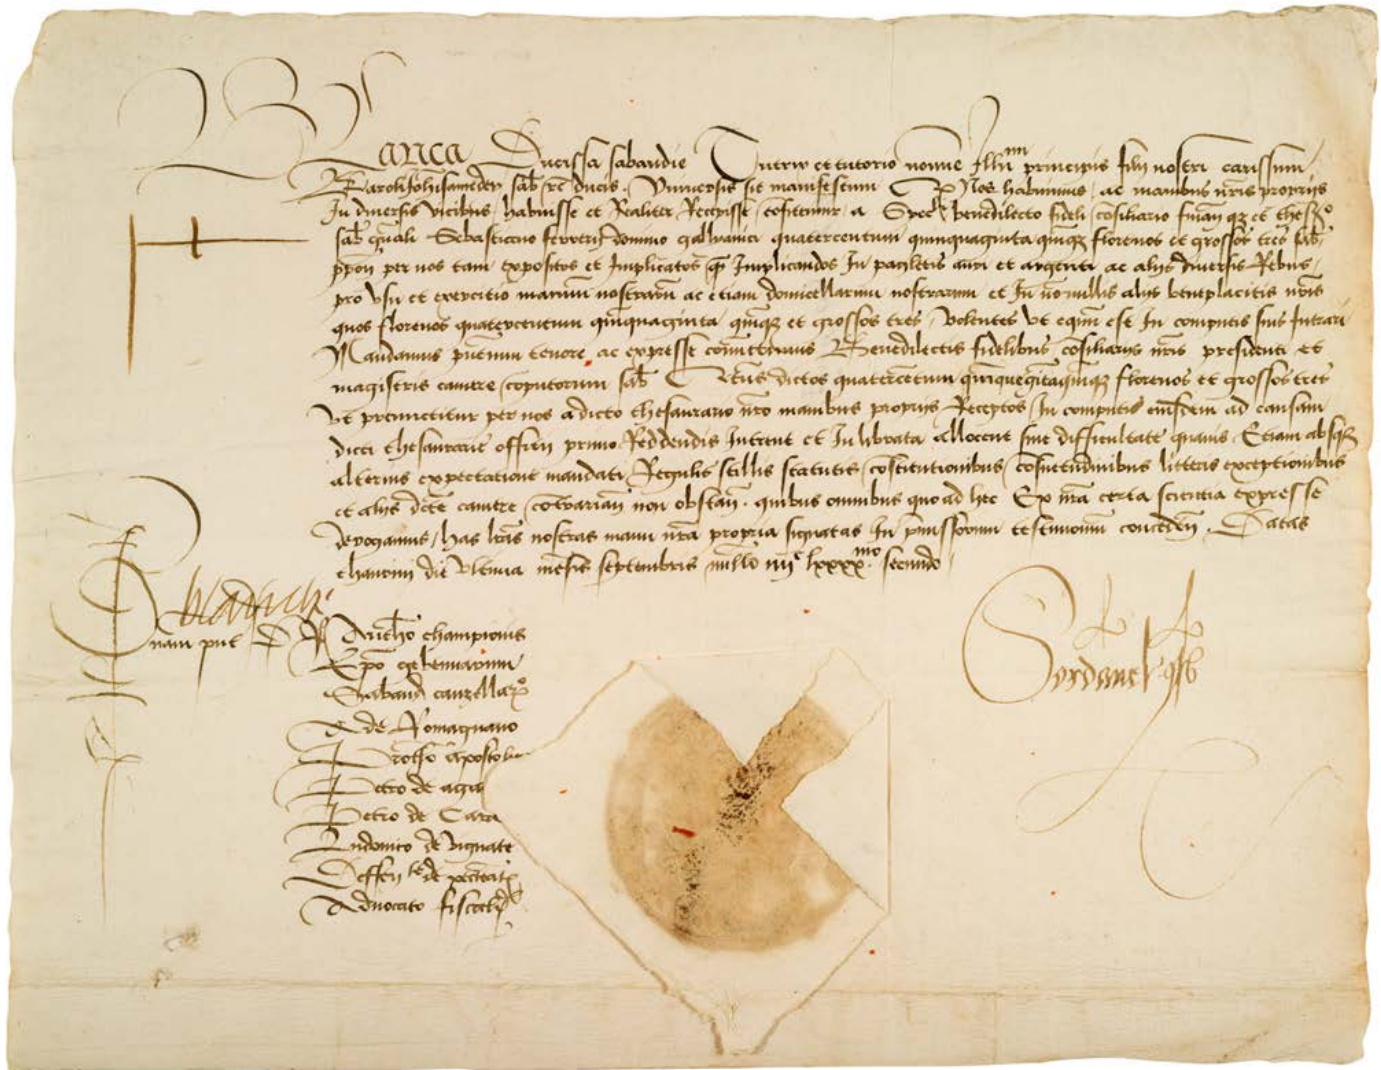 Blanca Ducissa Sabaudie Tutrix et tutorio nomine Illmi principis filij nostri carissimi
Karoli Johis amedei sab &c ducis . Universis sit manifestum Q Nos habuimus ac manibus nris proprijs
In diversis vicibus habuisse et Realiter Recepisse confitemur a Specli benedilecto fideli consiliario finan qz et thesro
sab gnali Sebastiano ferrerij domino gallianici quatercentum quinquaginta quinqz florenos et grossos tres sab
ppon per nos tam expositos et Implicatos q Implicandos In pagletis auri et argenti ac alijs diversis Rebus
pro usu et exercitio manuum nostrarum ac etiam domicellarum nostrarum et In nonnullis alijs beneplacitis nris
quos florenos quatercentum quinquaginta quinqz et grossos tres Volentes ut equm est In computis suis Intrari
Mandamus pntium tenore ac expresse comittimus Benedilectis fidelibus consiliarijs nris presidenti et
magistris camere computorum sab dictos quatercentum quinquagintaquinqz florenos et grossos tres
Ut premictitur per nos a dicto thesaurario nro manibus proprijs Receptos In computis eiusdem ad causam
dicti thesaurarie officij primo Reddendis Intrent et In librata allocent sine difficultate quavis Etiam absqz
alterius expectatione mandati Regulis stillis statutis constitutionibus consuetudinibus litteris exceptionibus
et alijs dicte camere contrarian non obstan . quibus omnibus quo ad hec Ex nra certa scientia expresse
derogamus has lras nostras manu nra propria signatas In pmissorum testimonium conceden . Datas
die ultima mesis septembris millo iiijc lxxxxmo secundo
blanche
nam pnt D
Antho championis
Epo gebennarum
Sabaud canzellaro
A de Romagnano
Protho apostolic
Petro de agia
Petro de Cara
Ludovico de vignate
Deffen te de pectenat
Advocato fiscali